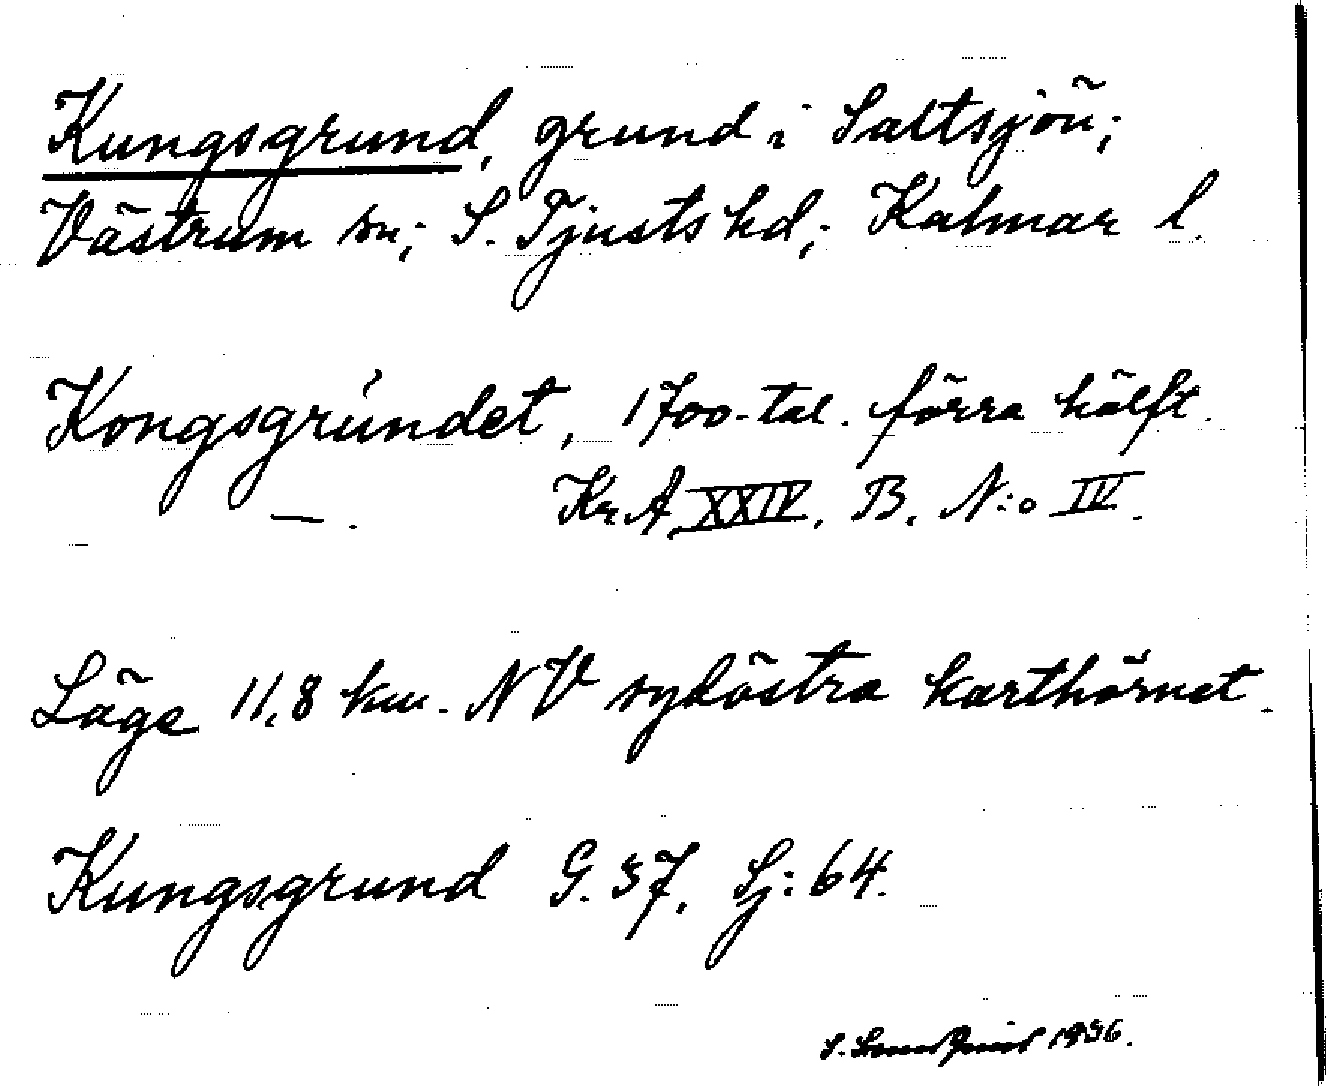 Kungsgrund, grund i Saltsjön;
Västrum sn; S. Tjusts hd; Kalmar l.
Kongsgrúndet, 1700-tal. förra hälft.
— . Kr. A. XXIV. B. N:o IV.
Läge 11,8 km. NV sydöstra karthörnet.
Kungsgrund G. 37. Sj: 64.
S. 1936.